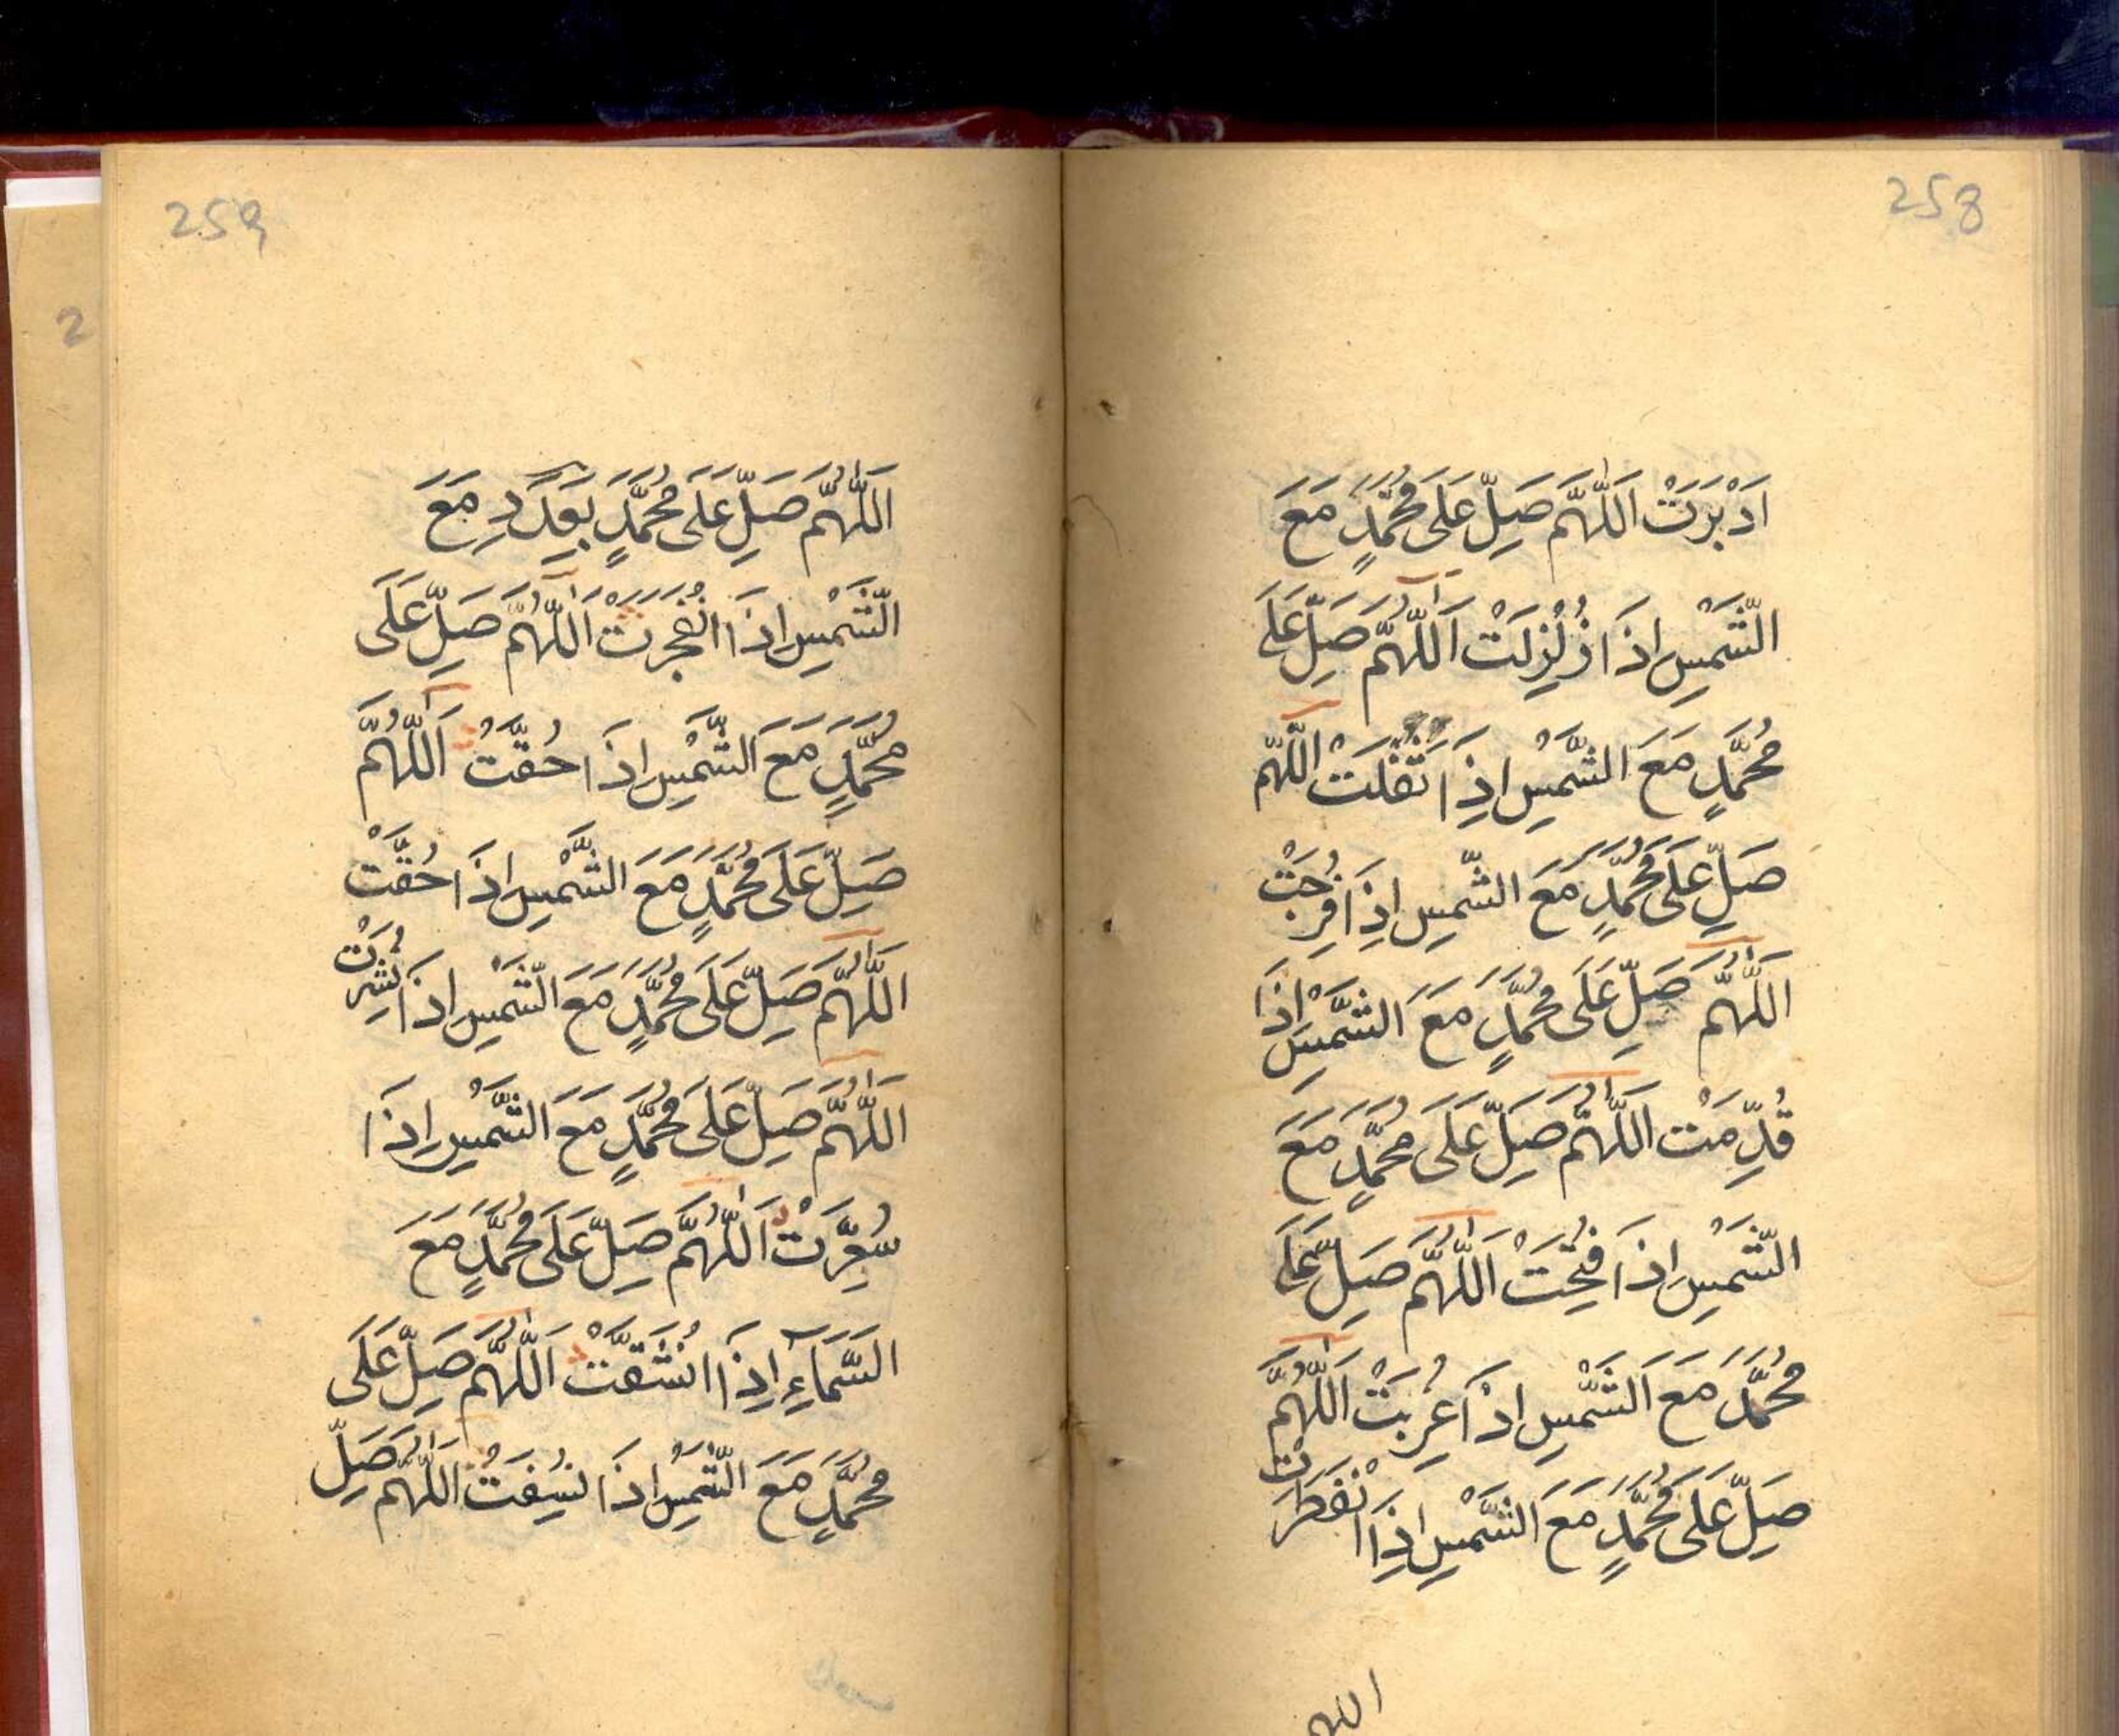 258
اَدْبَرَتْ اَللّٰهُمَّ صَلِّ عَلَى مُحَمَّدٍ مَعَ
الشَّمْسِ اِذَا زُلْزِلَتْ اَللّٰهُمَّ صَلِّ عَلَى
مُحَمَّدٍ مَعَ الشَّمْسِ اِذَا ثَقُلَتْ اَللّٰهُمَّ
صَلِّ عَلَى مُحَمَّدٍ مَعَ الشَّمْسِ اِذَا فُرِجَتْ
اَللّٰهُمَّ صَلِّ عَلَى مُحَمَّدٍ مَعَ الشَّمْسِ اِذَا
قُدِّمَتْ اَللّٰهُمَّ صَلِّ عَلَى مُحَمَّدٍ مَعَ
الشَّمْسِ اِذَا فُتِحَتْ اَللّٰهُمَّ صَلِّ عَلَى
مُحَمَّدٍ مَعَ الشَّمْسِ اِذَا غُرِبَتْ اَللّٰهُمَّ
صَلِّ عَلَى مُحَمَّدٍ مَعَ الشَّمْسِ اِذَا انْفَطَرَتْ
259
اَللّٰهُمَّ صَلِّ عَلَى مُحَمَّدٍ بِعَدَدِ مَعَ
الشَّمْسِ اِذَا انْفُجِرَتْ اَللّٰهُمَّ صَلِّ عَلَى
مُحَمَّدٍ مَعَ الشَّمْسِ اِذَا حُقَّتْ اَللّٰهُمَّ
صَلِّ عَلَى مُحَمَّدٍ مَعَ الشَّمْسِ اِذَا حُقَّتْ
اَللّٰهُمَّ صَلِّ عَلَى مُحَمَّدٍ مَعَ الشَّمْسِ اِذَا نُشِرَتْ
اَللّٰهُمَّ صَلِّ عَلَى مُحَمَّدٍ مَعَ الشَّمْسِ اِذَا
سُعِّرَتْ اَللّٰهُمَّ صَلِّ عَلَى مُحَمَّدٍ مَعَ
السَّمَآءِ اِذَا انْشَقَّتْ اَللّٰهُمَّ صَلِّ عَلَى
مُحَمَّدٍ مَعَ الشَّمْسِ اِذَا نُسِفَتْ اَللّٰهُمَّ صَلِّ